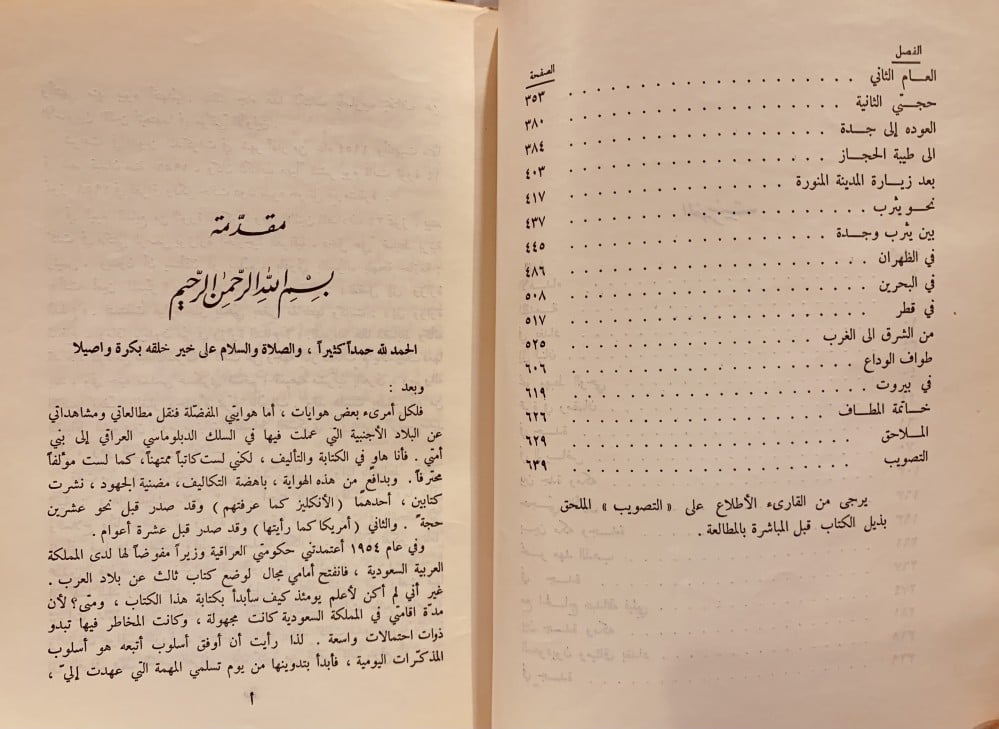 الفصل الصفحة
العـام الثاني . . . . . . . . . . ٣٥٣
حجتي الثانية . . . . . . . . . . ٣٨٠
العوده إلى جدة . . . . . . . . . . ٣٨٤
الى طيبة الحجاز . . . . . . . . . . ٤٠٣
بعد زيارة المدينة المنورة . . . . . . . . . . ٤١٧
نحو يثرب . . . . . . . . . . ٤٣٧
بين يثرب وجدة . . . . . . . . . . ٤٤٥
في الظهران . . . . . . . . . . ٤٨٦
في البحرين . . . . . . . . . . ٥٠٨
في قطر . . . . . . . . . . ٥١٧
من الشرق الى الغرب . . . . . . . . . . ٥٢٥
طواف الوداع . . . . . . . . . . ٦٠٦
في بيروت . . . . . . . . . . ٦١٩
خاتمة المطاف . . . . . . . . . . ٦٢٦
الملاحق . . . . . . . . . . ٦٢٩
التصويب . . . . . . . . . . ٦٣٩
يرجى من القارىء الأطلاع على « التصويب » الملحق
بذيل الكتاب قبل المباشرة بالمطالعة .
مقدّمة
بِسْمِ اللهِ الرَّحْمٰنِ الرَّحِيم
الحمد لله حمداً كثيراً ، والصلاة والسلام على خير خلقه بكرة واصيلا
وبعد :
فلكل أمرىء بعض هوايات ، أما هوايتي المفضّلة فنقل مطالعاتي ومشاهداتي
عن البلاد الأجنبية التي عملت فيها في السلك الدبلوماسي العراقي إلى بني
أمتي . فأنا هاوٍ في الكتابة والتأليف ، لكني لست كاتباً ممتهناً، كما لست مؤلفاً
محترفاً . وبدافع من هذه الهواية ، باهضة التكاليف، مضنية الجهود ، نشرت
كتابين ، أحدهما ( الأنكليز كما عرفتهم ) وقد صدر قبل نحو عشرين
حجة . والثاني ( أمريكا كما رأيتها ) وقد صدر قبل عشرة أعوام .
وفي عام ١٩٥٤ أعتمدتني حكومتي العراقية وزيراً مفوضاً لها لدى المملكة
العربية السعودية ، فانفتح أمامي مجال لوضع كتاب ثالث عن بلاد العرب .
غير أني لم أكن لأعلم يومئذ كيف سأبدأ بكتابة هذا الكتاب ، ومتى؟ لأن
مدة اقامتي في المملكة السعودية كانت مجهولة ، وكانت المخاطر فيها تبدو
ذوات احتمالات واسعة . لذا رأيت أن أوفق أسلوب أتبعه هو أسلوب
المذكّرات اليومية ، فأبدأ بتدوينها من يوم تسلمي المهمة التي عهدت إليّ ،
أ